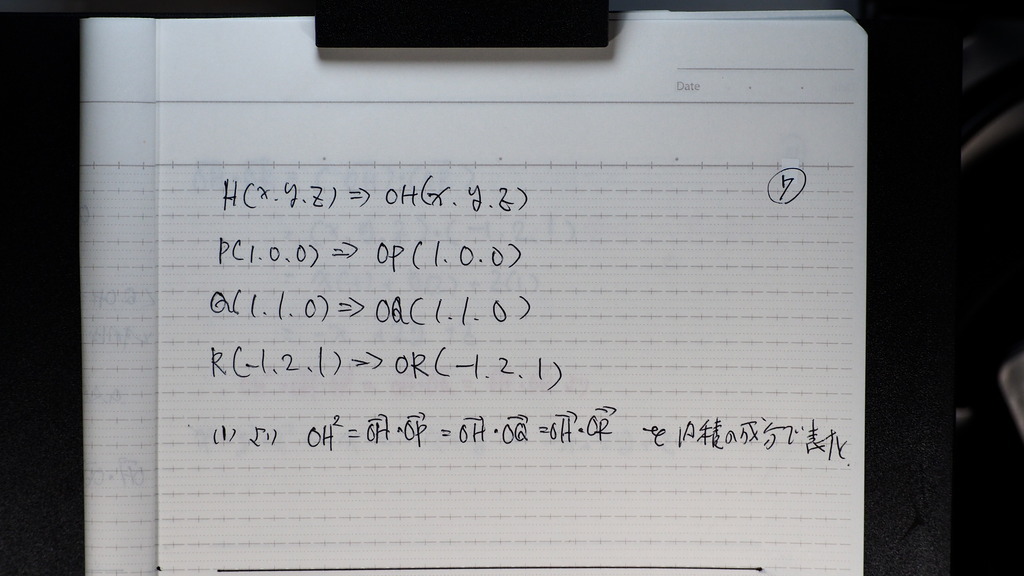 Date
⑦
H(x.y.z) ⇒ OH(x.y.z)
P(1.0.0) ⇒ OP(1.0.0)
Q(1.1.0) ⇒ OQ(1.1.0)
R(-1.2.1) ⇒ OR(-1.2.1)
(1)より OH² = \overrightarrow{OH}・\overrightarrow{OP} = \overrightarrow{OH}・\overrightarrow{OQ} = \overrightarrow{OH}・\overrightarrow{OR} を内積の成分で表すと.